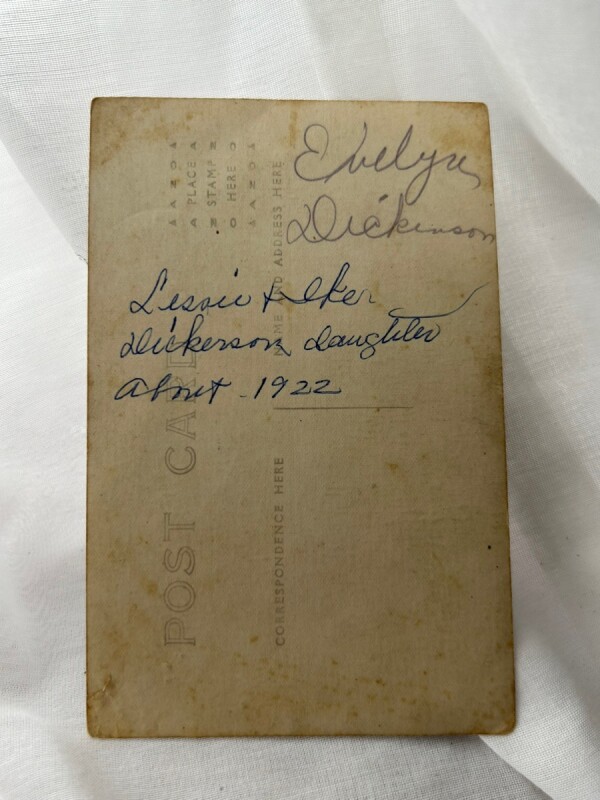 Evelyn
Dickinson
Lessie & Iker
Dickerson daughter
About - 1922
POST CARD
CORRESPONDENCE HERE
NAME AND ADDRESS HERE
AZO
PLACE
STAMP
HERE
AZO